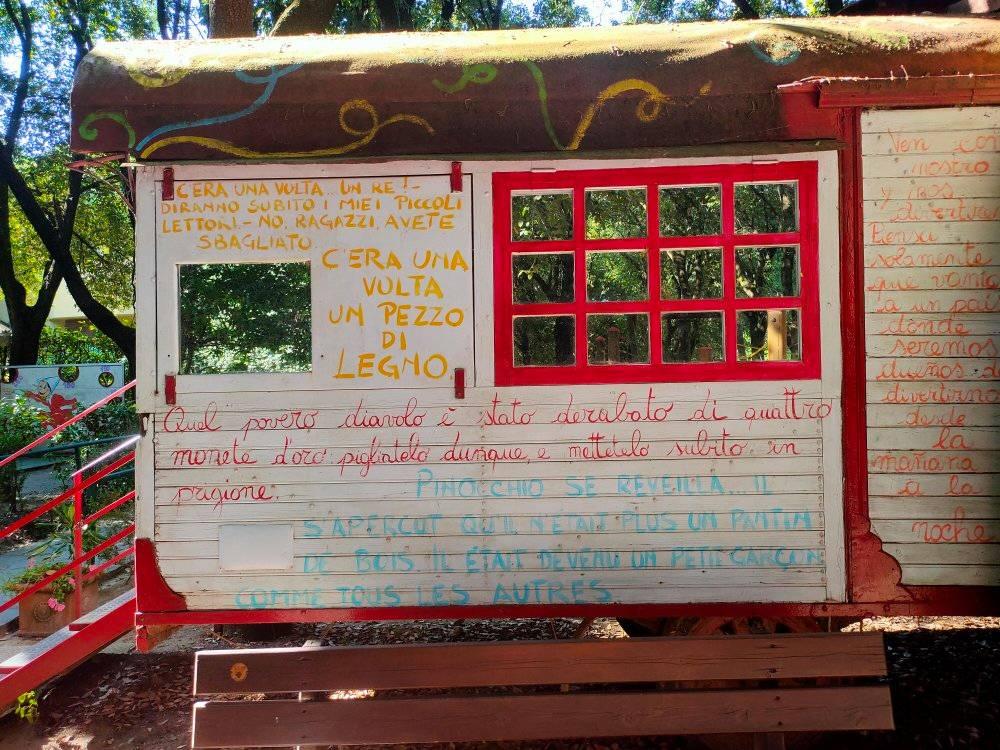 C'ERA UNA VOLTA.. UN RE!-
DIRANNO SUBITO I MIEI PICCOLI
LETTORI.- NO, RAGAZZI, AVETE
SBAGLIATO.
C'ERA UNA
VOLTA
UN PEZZO
DI
LEGNO.
Quel povero diavolo è stato derubato di quattro
monete d'oro: pigliatelo dunque, e mettetelo subito in
prigione.
PINOCCHIO SE REVEILLA... IL
S'APERÇUT QU'IL N'ÉTAIT PLUS UN PANTIN
DE BOIS. IL ÉTAIT DEVENU UN PETIT GARÇON
COMME TOUS LES AUTRES.
Ven con
nostro
y nos
Piensa
solamente
que vamos
a un país
donde
seremos
dueños de
divertirnos
desde
la
mañana
a la
noche